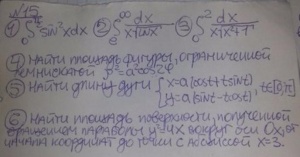 №15
1) ∫₀ sin³xdx 2) ∫ₑ^∞ dx/x√lnx 3) ∫₀² dx/
4) Найти площадь фигуры, ограниченной
лемнискатой ρ²=a²cos2φ
5) Найти длину дуги {x=a(cost+tsint) y=a(sint-tcost) t∈[0,π]
6) Найти площадь поверхности, полученной
вращением параболы y²=4x вокруг оси Ox, от
начала координат до точки с абсциссой x=3.